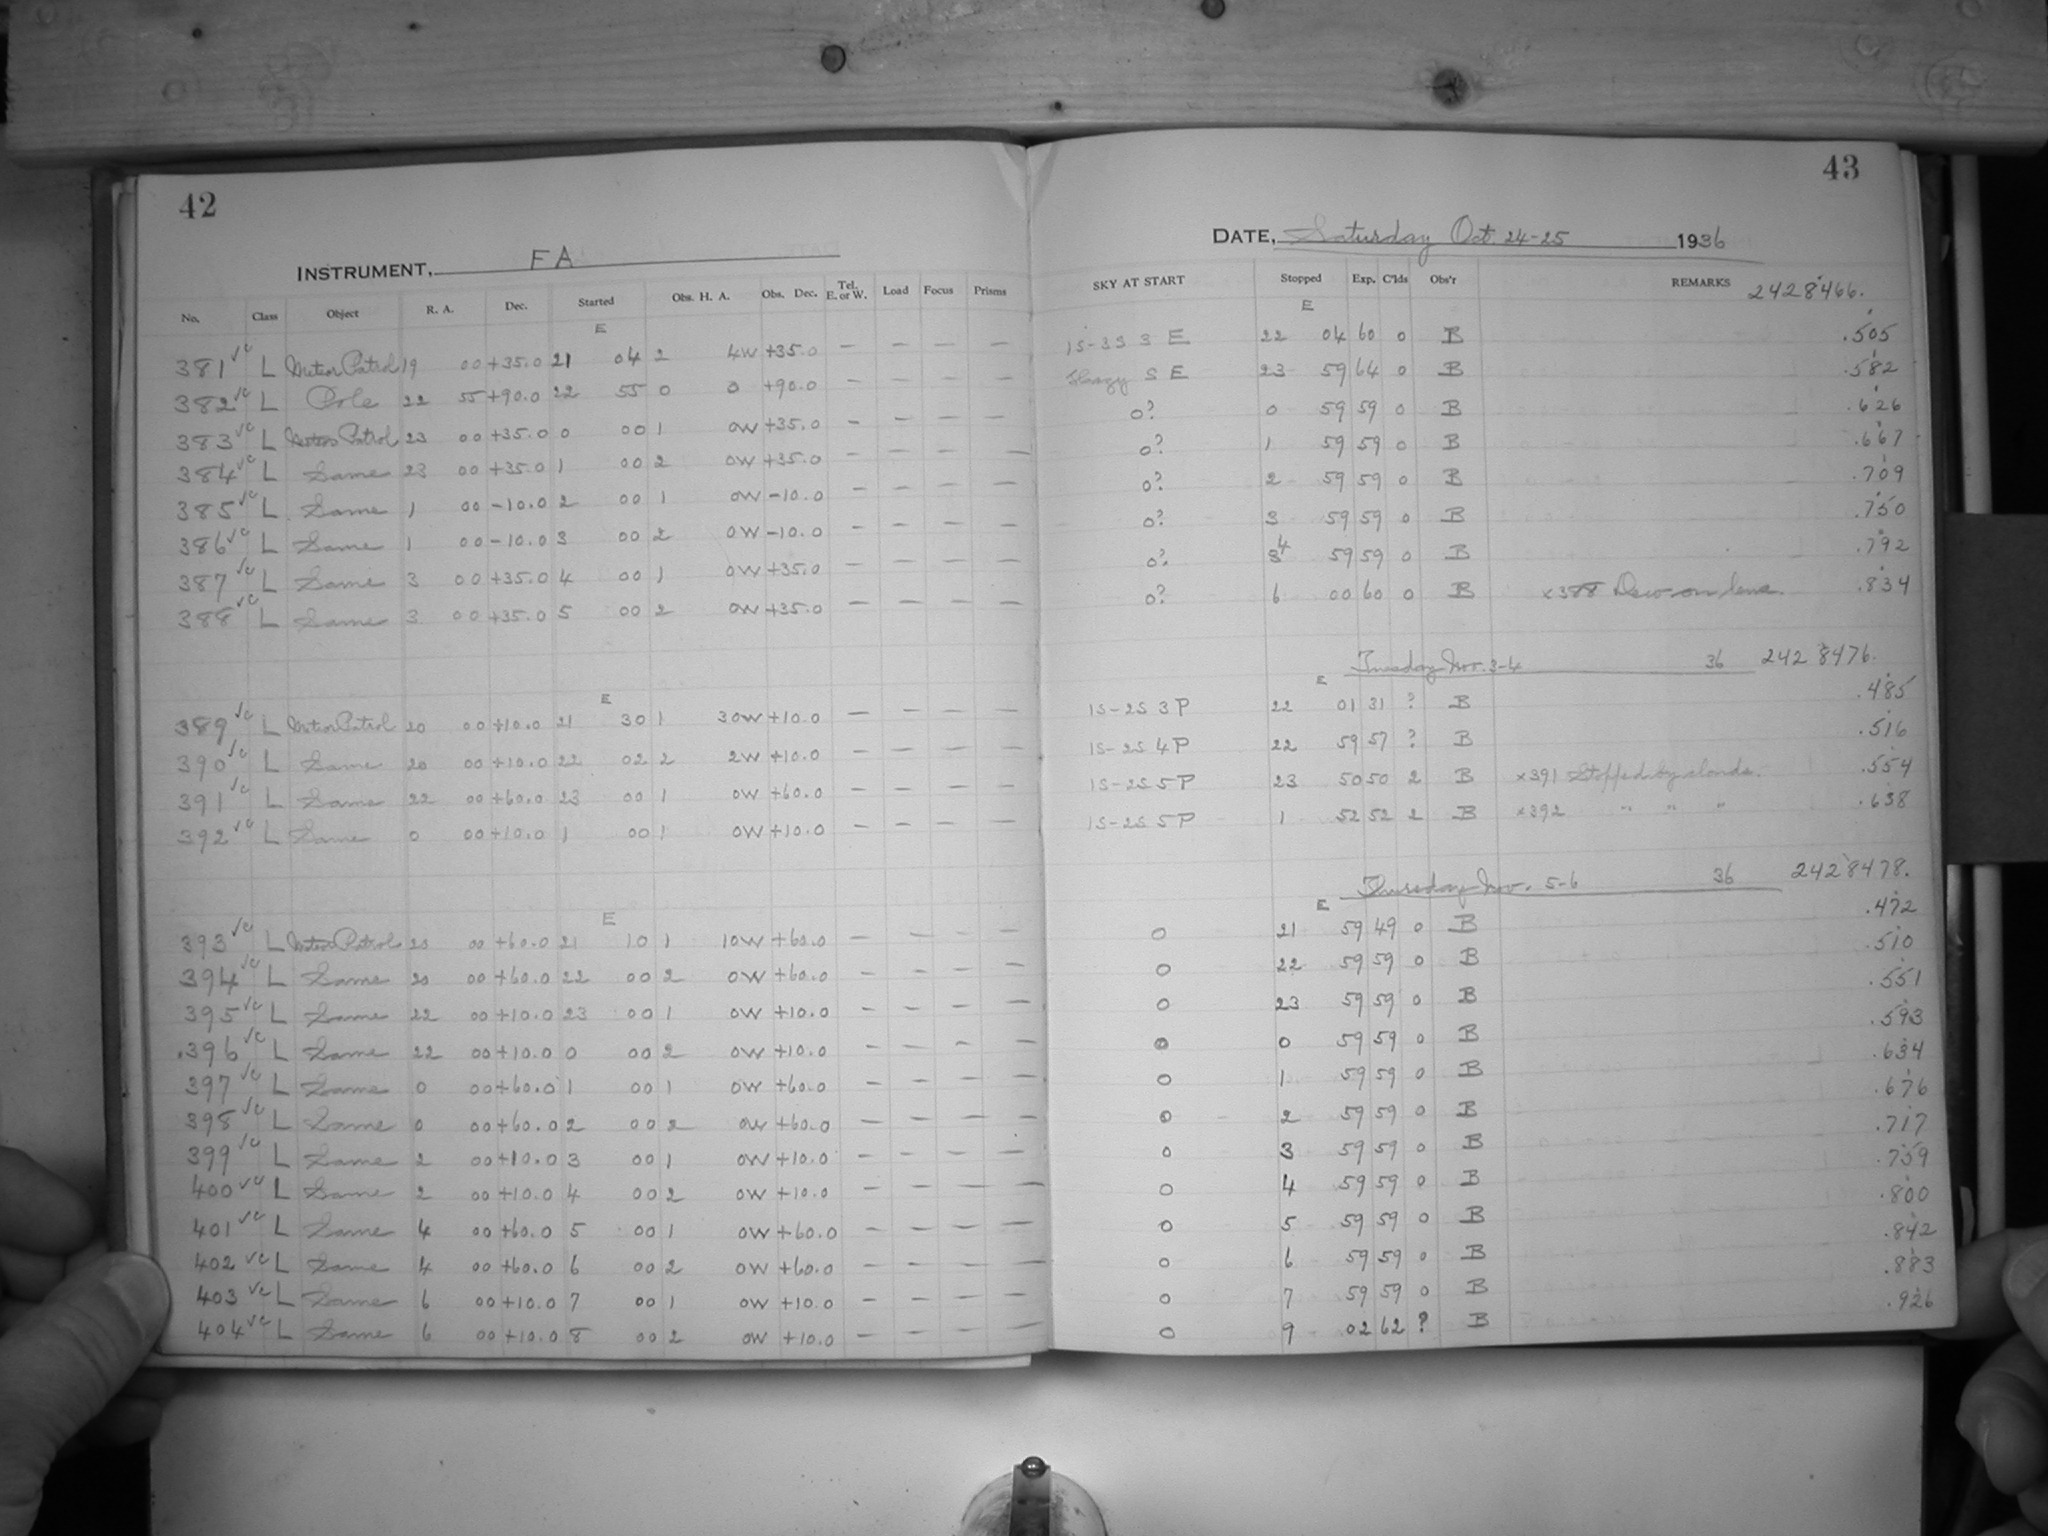 42
INSTRUMENT, FA
No. Class Object R. A. Dec. Started Obs. H. A. Obs. Dec. Tel. E. or W. Load Focus Prisms
E
381 vc L Meteor Patrol 19 00 +35.0 21 04 2 4W +35.0 — — — —
382 vc L Pole 22 55 +90.0 22 55 0 0 +90.0 — — — —
383 vc L Meteor Patrol 23 00 +35.0 0 00 1 0W +35.0 — — — —
384 vc L Same 23 00 +35.0 1 00 2 0W +35.0 — — — —
385 vc L Same 1 00 -10.0 2 00 1 0W -10.0 — — — —
386 vc L Same 1 00 -10.0 3 00 2 0W -10.0 — — — —
387 vc L Same 3 00 +35.0 4 00 1 0W +35.0 — — — —
388 vc L Same 3 00 +35.0 5 00 2 0W +35.0 — — — —
E
389 vc L Meteor Patrol 20 00 +10.0 21 30 1 30W +10.0 — — — —
390 vc L Same 20 00 +10.0 22 02 2 2W +10.0 — — — —
391 vc L Same 22 00 +60.0 23 00 1 0W +60.0 — — — —
392 vc L Same 0 00 +10.0 1 00 1 0W +10.0 — — — —
E
393 vc L Meteor Patrol 20 00 +60.0 21 10 1 10W +60.0 — — — —
394 vc L Same 20 00 +60.0 22 00 2 0W +60.0 — — — —
395 vc L Same 22 00 +10.0 23 00 1 0W +10.0 — — — —
396 vc L Same 22 00 +10.0 0 00 2 0W +10.0 — — — —
397 vc L Same 0 00 +60.0 1 00 1 0W +60.0 — — — —
398 vc L Same 0 00 +60.0 2 00 2 0W +60.0 — — — —
399 vc L Same 2 00 +10.0 3 00 1 0W +10.0 — — — —
400 vc L Same 2 00 +10.0 4 00 2 0W +10.0 — — — —
401 vc L Same 4 00 +60.0 5 00 1 0W +60.0 — — — —
402 vc L Same 4 00 +60.0 6 00 2 0W +60.0 — — — —
403 vc L Same 6 00 +10.0 7 00 1 0W +10.0 — — — —
404 vc L Same 6 00 +10.0 8 00 2 0W +10.0 — — — —
43
DATE, Saturday Oct. 24-25 1936
SKY AT START Stopped Exp. C'lds Obs'r REMARKS 2428466.
E
1S-3S 3 E 22 04 60 0 B .505
Hazy S E 23 59 64 0 B .582
0? 0 59 59 0 B .626
0? 1 59 59 0 B .667
0? 2 59 59 0 B .709
0? 3 59 59 0 B .750
0? 4 59 59 0 B .792
0? 6 00 60 0 B x388 Dew on lens. .834
Tuesday Nov. 3-4 36 2428476.
E
1S-2S 3P 22 01 31 ? B .485
1S-2S 4P 22 59 57 ? B .516
1S-2S 5P 23 50 50 2 B x391 Stopped by clouds. .554
1S-2S 5P 1 52 52 2 B x392 " " " .638
Thursday Nov. 5-6 36 2428478.
E
0 21 59 49 0 B .472
0 22 59 59 0 B .510
0 23 59 59 0 B .551
0 0 59 59 0 B .593
0 1 59 59 0 B .634
0 2 59 59 0 B .676
0 3 59 59 0 B .717
0 4 59 59 0 B .759
0 5 59 59 0 B .800
0 6 59 59 0 B .842
0 7 59 59 0 B .883
0 9 02 62 ? B .926